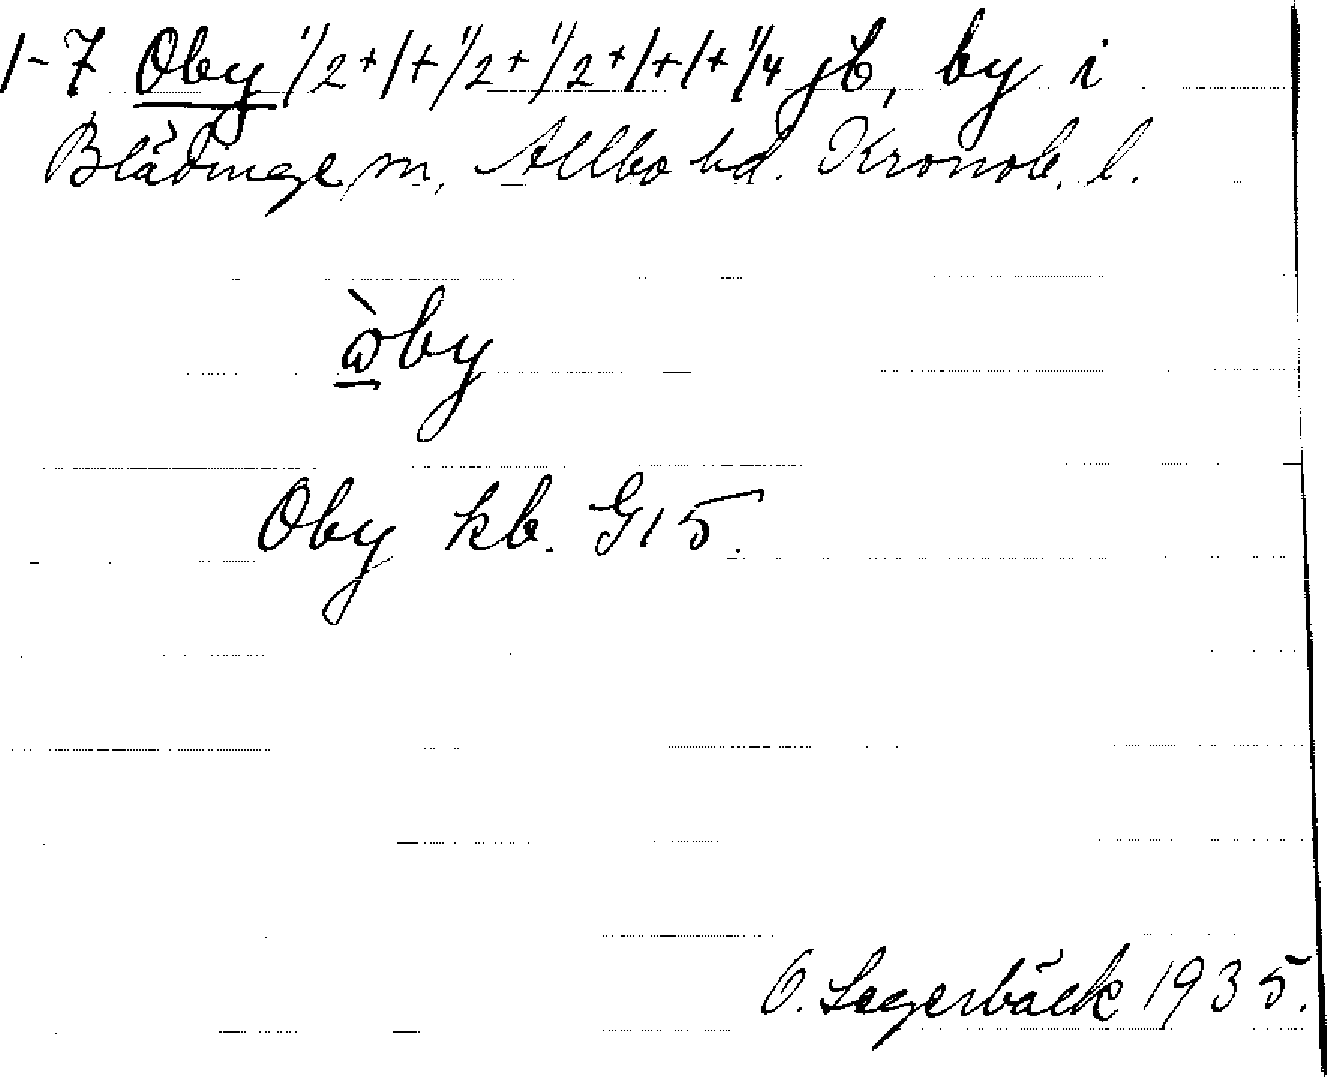 1-7 Oby 1/2+1+1/2+1/2+1+1+1/4 jb, by i
Blädinge sn, Allbo hd. Kronob. l.
ὰby
Oby kb. G15.
O. Lagerbäck 1935.